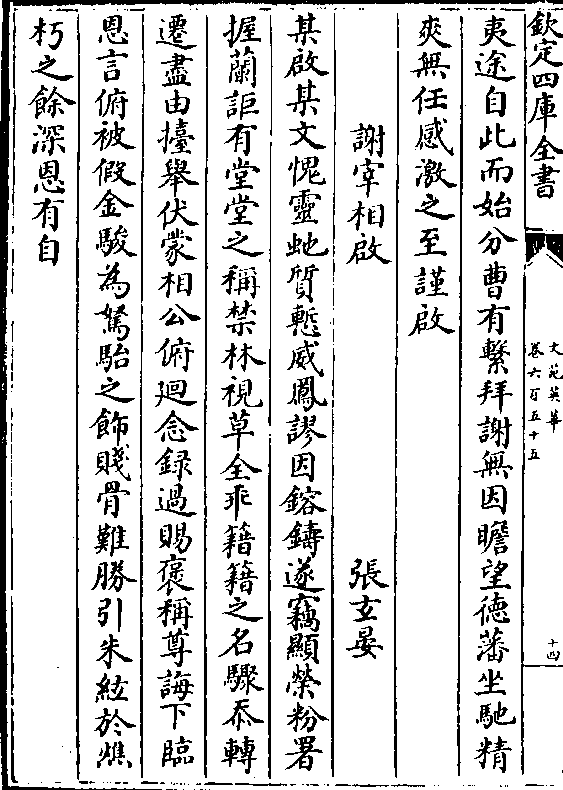 欽定四庫全書
文苑英華
卷六百五十五
十四
夷途自此而始分曹有繫拜謝無因瞻望德藩坐馳精
爽無任感激之至謹啟
謝宰相啟
張玄晏
某啟某文愧靈虵質慙威鳳謬因鎔鑄遂竊顯榮粉署
握蘭詎有堂堂之稱禁林視草全乖籍籍之名驟忝轉
遷盡由擡舉伏蒙相公俯廻念録過賜褒稱尊誨下臨
恩言俯被假金駿為駑駘之飾賤骨難勝引朱絃於燋
朽之餘深恩有自